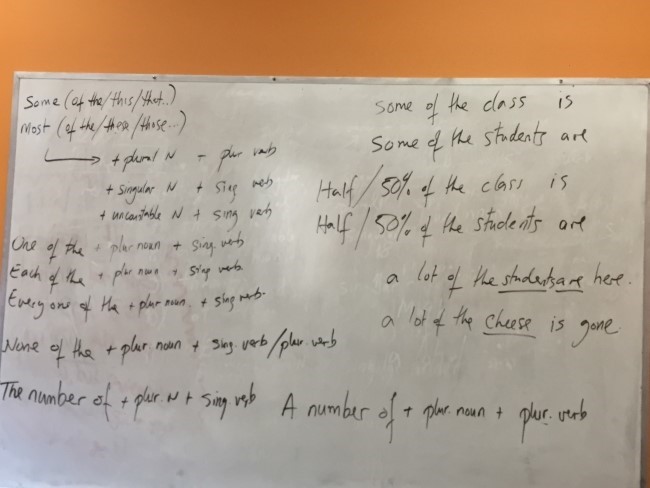 Some (of the/this/that..)
Most (of the/these/those...)
+ plural N - plur verb
+ singular N + sing verb
+ uncountable N + sing verb
One of the + plur noun + sing. verb
Each of the + plur noun + sing verb.
Every one of the + plur noun. + sing verb.
None of the + plur noun + sing. verb/plur verb
The number of + plur. N + sing verb
Some of the class is
Some of the students are
Half/50% of the class is
Half/50% of the students are
a lot of the students are here.
a lot of the cheese is gone.
A number of + plur. noun + plur. verb